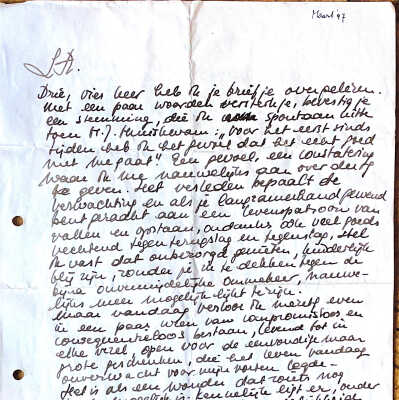 Maart '97
L.R.
Drie, vier keer heb ik je briefje overgelezen.
Met een paar woorden versterk je, bevestig je
een stemming, die ik spontaan uitte
toen H.J. thuiskwam: "Voor het eerst sinds
tijden heb ik het gevoel dat het echt goed
met me gaat". Een gevoel, een constatering
waar ik me nauwelijks aan over durf
te geven. Het verleden bepaalt de
verwachting en als je langzamerhand gewend
bent geraakt aan een levenspatroon van
vallen en opstaan, ondanks ook veel goeds
vechtend tegen terugslag en tegenslag, stel
ik vast dat onbezorgd genieten, kinderlijk
blij zijn, zonder je in te dekken tegen de
bijna onvermijdelijke ommekeer, nauwe-
lijks meer mogelijk lijkt te zijn.
Maar vandaag verloor ik mezelf even
in een paar uren van compromisloos en
consequentieloos bestaan, levend tot in
elke vezel, open voor de eenvoudige maar
grote geschenken, die het leven vandaag
onverwacht voor mijn voeten legde.
Het is als een wonder dat zoiets nog
kennelijk ligt er, onder